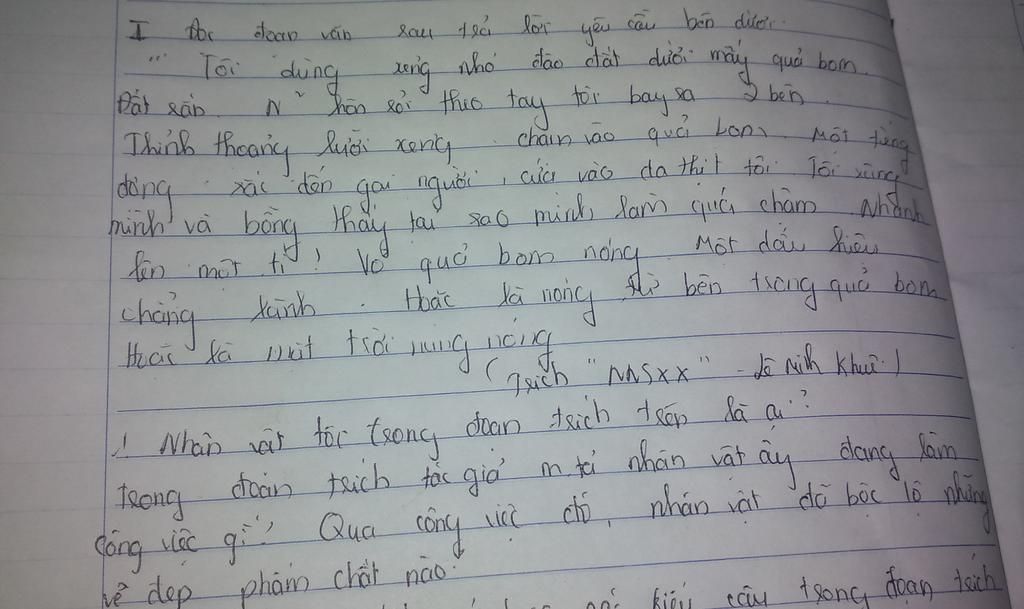 I Đọc đoạn văn sau trả lời yêu cầu bên dưới.
"Tôi dùng xẻng nhỏ đào đất dưới mấy quả bom.
Đất rắn. N² hòn sỏi theo tay tôi bay ra 2 bên.
Thỉnh thoảng lưỡi xẻng chạm vào quả bom. Một tiếng
động sắc đến gai người, cứa vào da thịt tôi. Tôi rùng
mình và bỗng thấy tại sao mình làm quá chậm. Nhanh
lên một tí! Vỏ quả bom nóng. Một dấu hiệu
chẳng lành. Hoặc là nóng từ bên trong quả bom
Hoặc là mặt trời nung nóng
(Trích "NNSXX" - Lê Minh Khuê)
1 Nhân vật tôi trong đoạn trích trên là ai?
trong đoạn trích tác giả m tả nhân vật ấy đang làm
công việc gì? Qua công việc đó, nhân vật đã bộc lộ những
vẻ đẹp phẩm chất nào.
kiểu câu trong đoạn trích